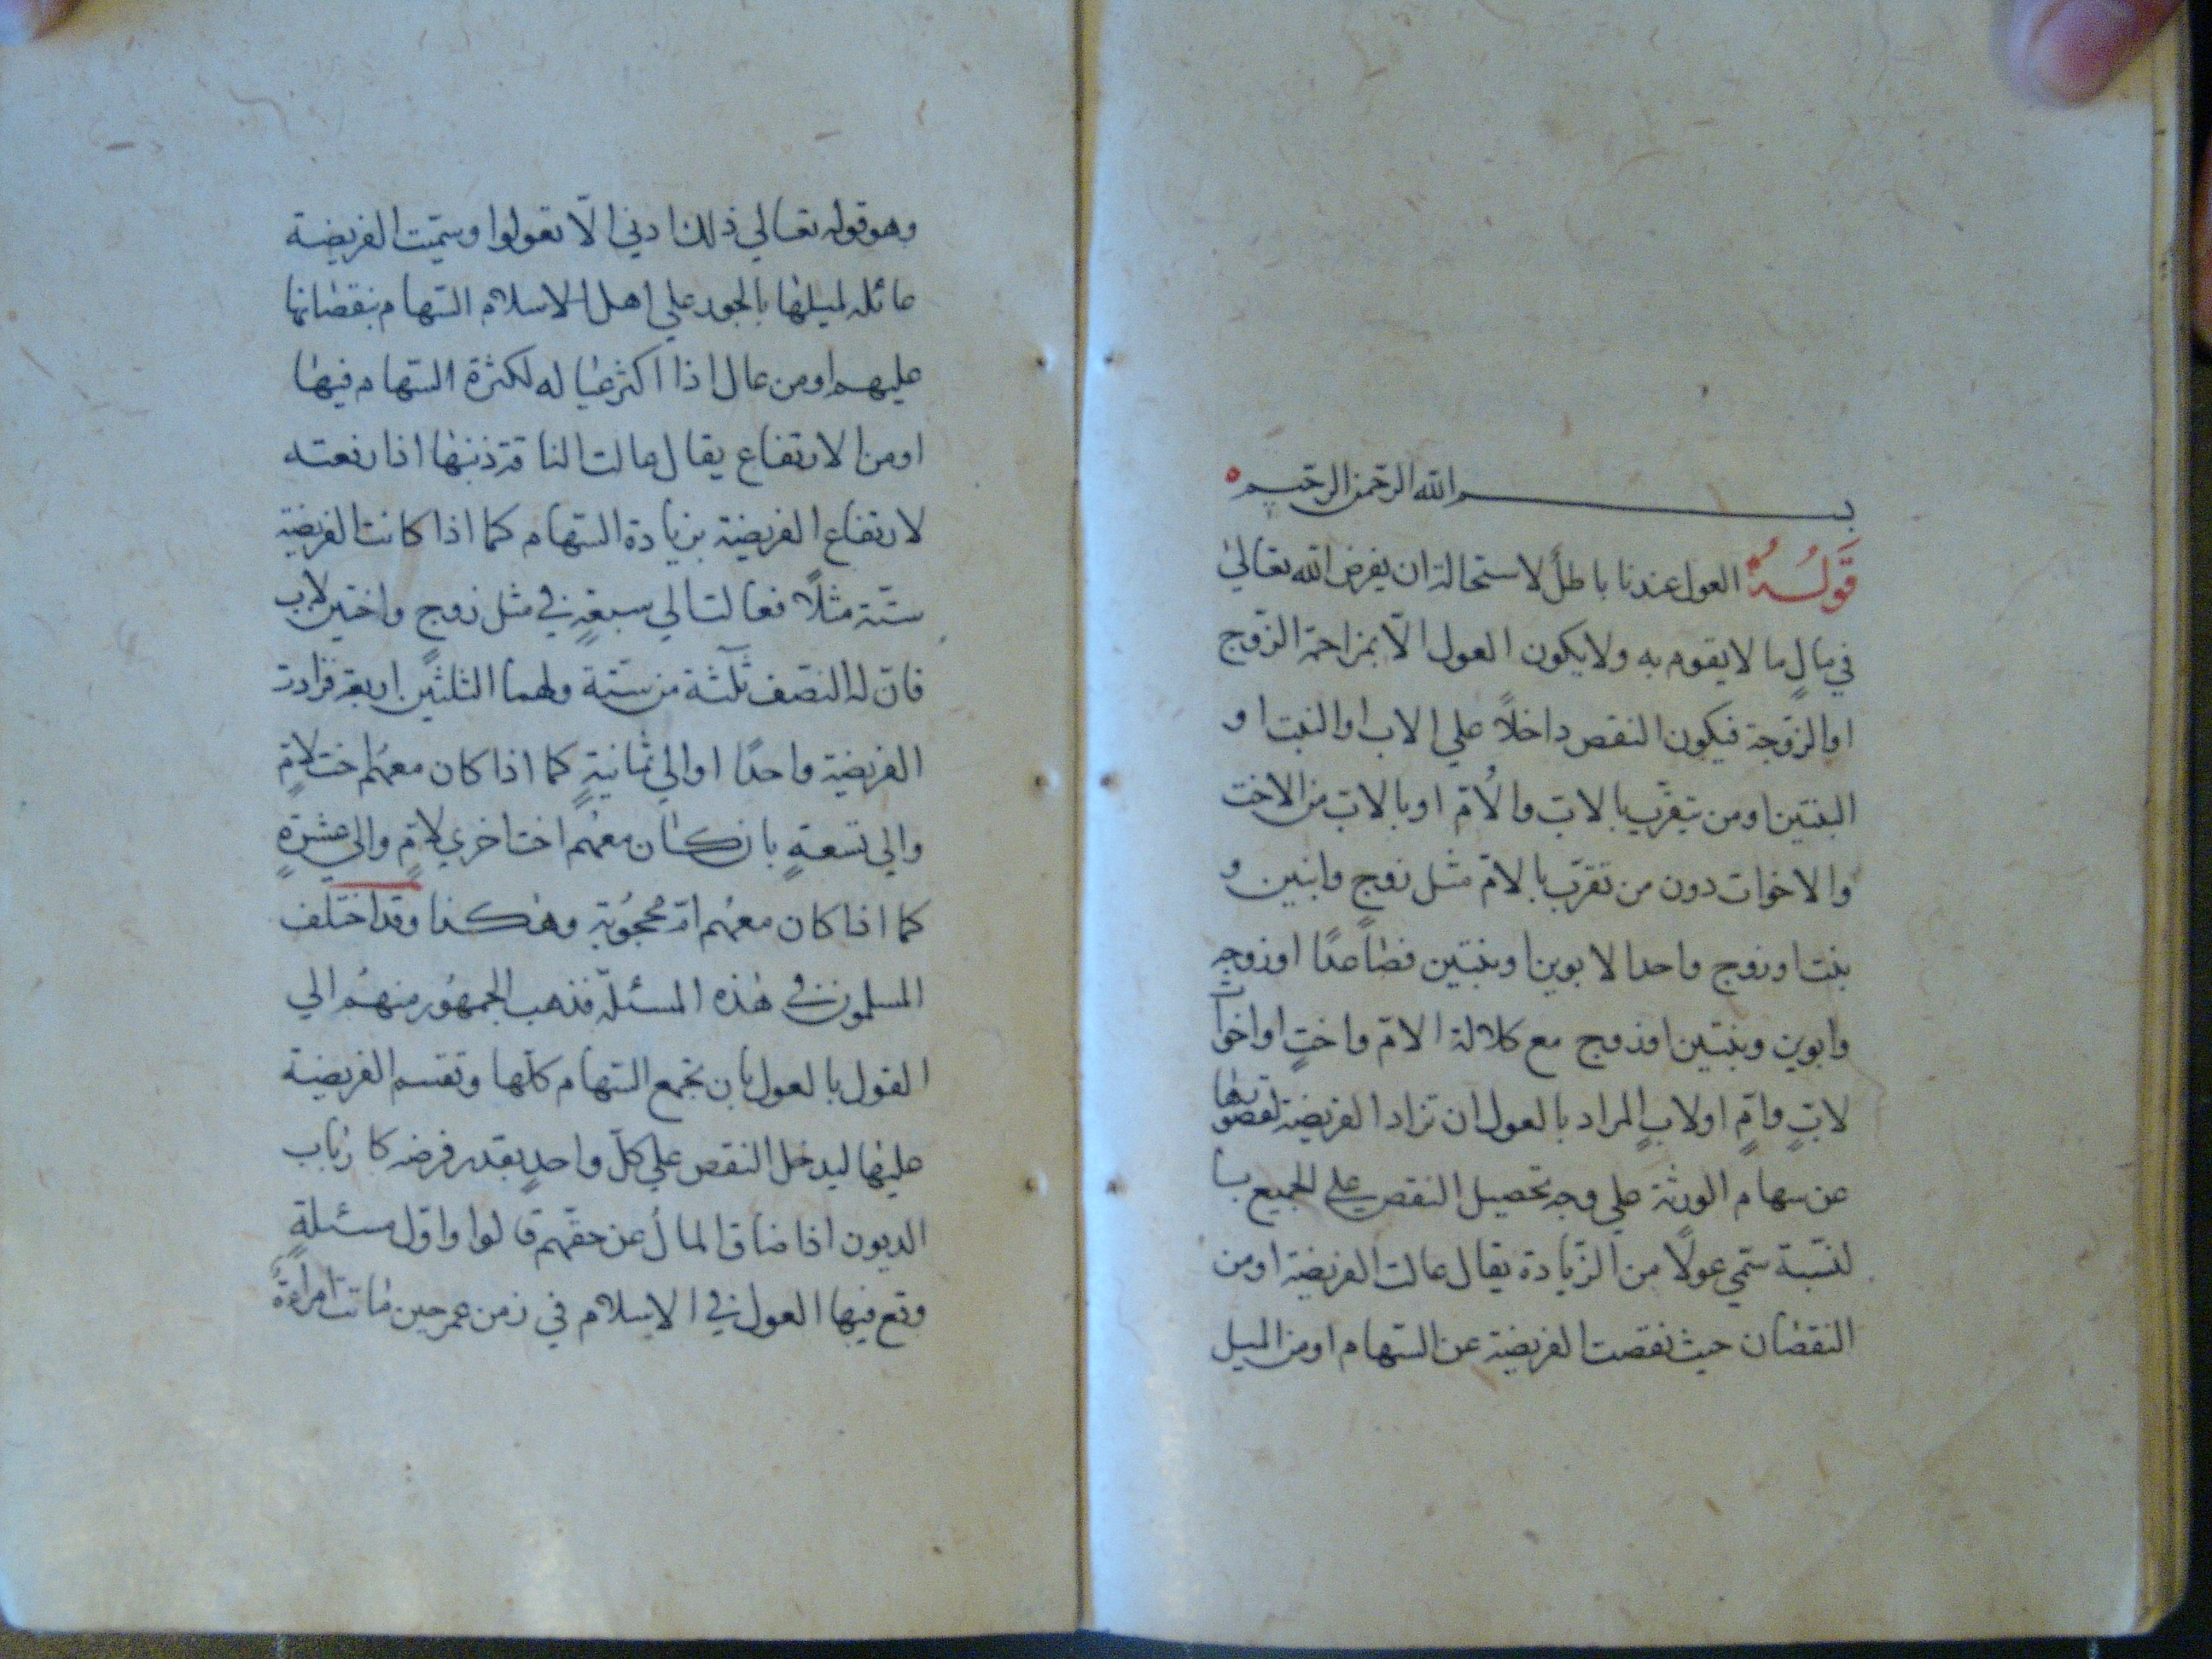 بسم الله الرحمن الرحيم
قَولُهُ العول عندنا باطلٌ لاستحالة ان يفرض الله تعالى
في مالٍ ما لا يقوم به ولا يكون العول الّا بمزاحمة الزّوج
او الزّوجة فيكون النقص داخلاً علي الاب او البنت او
البنتين او من يتقرّب بالاب والاُمّ او بالاب من الاخت
والاخوات دون من تقرّب بالامّ مثل زوج وابنين و
بنت او زوج واحد الابوين او بنتين فصاعدًا او زوجه
وابوين وبنتين او زوج مع كلالة الامّ واختٍ او اخوات
لابٍ وامٍّ او لابٍ المراد بالعول ان تزاد الفريضة لقصورها
عن سهام الورثة علي وجه تحصيل النقص علي الجميع با
لنّسبة سمّي عولًا من الزّيادة يقال عالت الفريضة او من
النقصان حيث نقصت الفريضة عن السّهام او من الميل
وهو قوله تعالي ذلك ادني الّا تعولوا وسمّيت الفريضة
عائله لميلها بالجور علي اهل الاسلام السّهام بنقصانها
عليهم او من عال اذا اكثر عياله لكثرة السّهام فيها
او من الارتفاع يقال عالت الناقة ذنبها اذا رفعته
لارتفاع الفريضة بزيادة السّهام كما اذا كانت الفريضة
ستّة مثلًا فعالت الي سبعةٍ في مثل زوجٍ واختين لابٍ
فانّ له النصف ثلٰثة من ستّة ولهما الثلثين اربعة فزادت
الفريضة واحدًا او الي ثمانيةٍ كما اذا كان معهُم اخت لامٍّ
والي تسعةٍ بان كان معهُم اخت اخري لامٍّ والي عشرةٍ
كما اذا كان معهُم امّ محجوُبة وهٰكذا وقد اختلف
المسلمون في هٰذه المسئلة فذهب الجمهُور منهُم الي
القول بالعول بان تجمع السّهام كلّها وتقسم الفريضة
عليها ليدخل النقص علي كلّ واحدٍ بقدر فرضه كارباب
الديون اذا ضاق المالُ عن حقّهم قالوا واوّل مسئلةٍ
وقع فيها العول في الاسلام في زمن عمر حين ماتت امراءةٌ